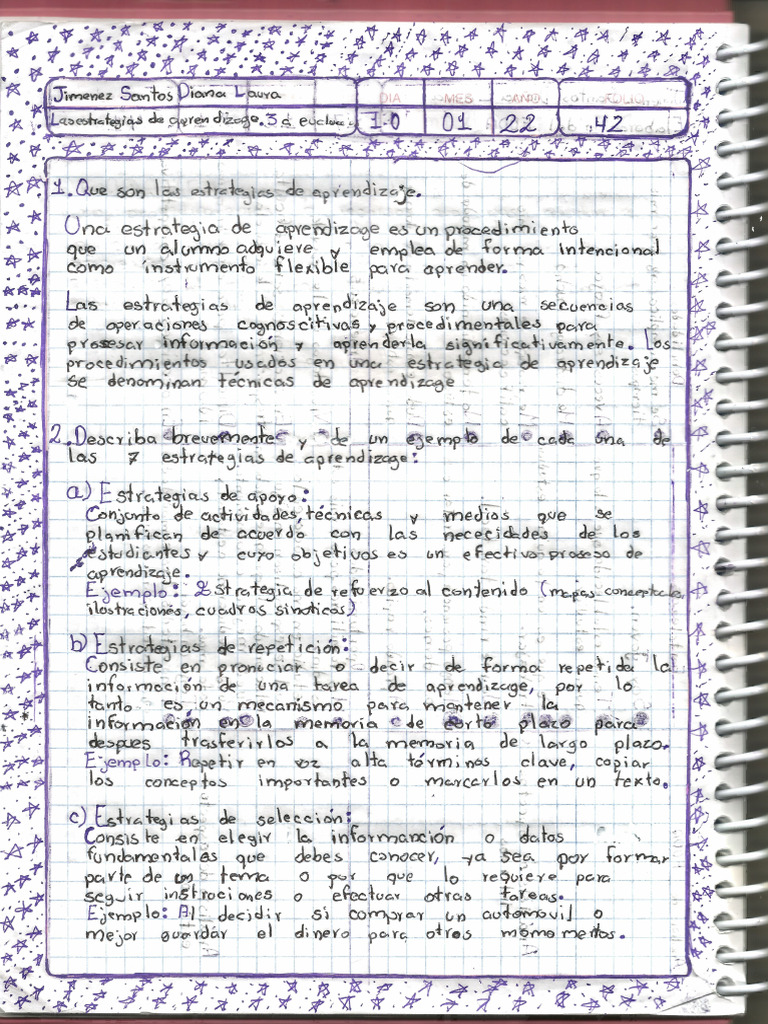 Jimenez Santos Diana Laura
DIA MES AÑO FOLIO
Las estrategias de aprendizage. 3 d 10 01 22 42
1. Que son las estrategias de aprendizaje.
Una estrategia de aprendizage es un procedimiento
que un alumno adquiere y emplea de forma intencional
como instrumento flexible para aprender.
Las estrategias de aprendizaje son una secuencias
de operaciones cognoscitivas y procedimentales para
prosesar información y aprenderla significativamente. Los
procedimientos usados en una estrategia de aprendizaje
se denominan técnicas de aprendizage
2. Describa brevemente y de un ejemplo de cada una de
las 7 estrategias de aprendizage:
a) Estrategias de apoyo:
Conjunto de actividades, técnicas y medios que se
planifican de acuerdo con las nececidades de los
estudiantes y cuyo objetivos es un efectivo proseso de
aprendizaje.
Ejemplo: Estrategia de refuerzo al contenido (mapas conceptuales
ilostraciones, cuadros sinoticos)
b) Estrategias de repetición:
Consiste en pronuciar o decir de forma repetida la
información de una tarea de aprendizage, por lo
tanto es un mecanismo para mantener la
información en la memoria de corto plazo para
despues trasferirlos a la memoria de largo plazo.
Ejemplo: Repetir en voz alta términos clave, copiar
los conceptos importantes o marcarlos en un texto.
c) Estrategias de selección:
Consiste en elegir la informanción o datos
fundamentales que debes conocer, ya sea por formar
parte de un tema o por que lo requiere para
seguir instrociones o efectuar otras tareas.
Ejemplo: Al decidir si comprar un automovil o
mejor guardar el dinero para otros momomentos.